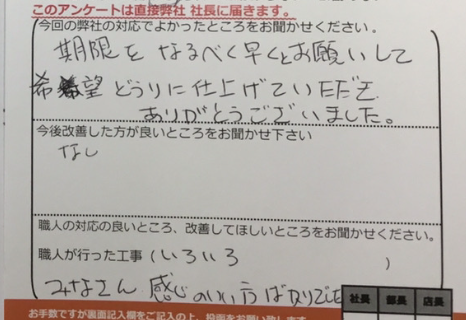 このアンケートは直接弊社 社長に届きます。
今回の弊社の対応でよかったところをお聞かせください。
期限をなるべく早くとお願いして
希望どうりに仕上げていただき
ありがとうございました。
今後改善した方が良いところをお聞かせ下さい
なし
職人の対応の良いところ、改善してほしいところをお聞かせください。
職人が行った工事(いろいろ)
みなさん 感じのいい方ばかりでした
社長 部長 店長
お手数ですが裏面記入欄をご記入の上、投函をお願い致します